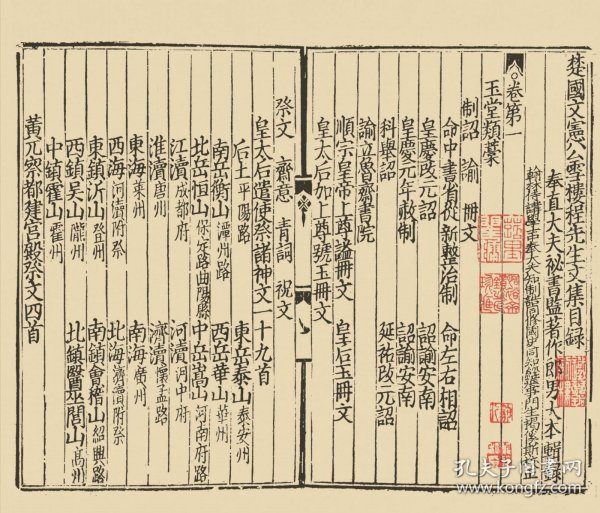 楚國文憲公雪樓程先生文集目錄
奉直大夫祕書監著作郎男大本輯錄
翰林侍講學士通奉大夫知制誥同脩國史同知經筵事門生揭傒斯校正
卷第一
玉堂類藁
制詔 諭 冊文
命中書省從新整治制 命左右相詔
皇慶改元詔 詔諭安南
皇慶元年赦制 詔諭安南
科舉詔 延祐改元詔
諭立魯齋書院
順宗皇帝上尊謚冊文 皇后玉冊文
皇太后加上尊號玉冊文
祭文 齋意 青詞 祝文
皇太后遣使祭諸神文一十九首
后土平陽路 東岳泰山泰安州
南岳衡山潭州路 西岳華山華州
北岳恒山保定路曲陽縣 中岳嵩山河南府路
江瀆成都府 河瀆河中府
淮瀆唐州 濟瀆懷孟路
東海萊州 南海廣州
西海河瀆附祭 北海濟瀆附祭
東鎮沂山登州 南鎮會稽山紹興路
西鎮吳山隴州 北鎮醫巫閭山
中鎮霍山霍州
黃兀察都建宫殿祭文四首
孔夫子旧书网
www.kongfz.com